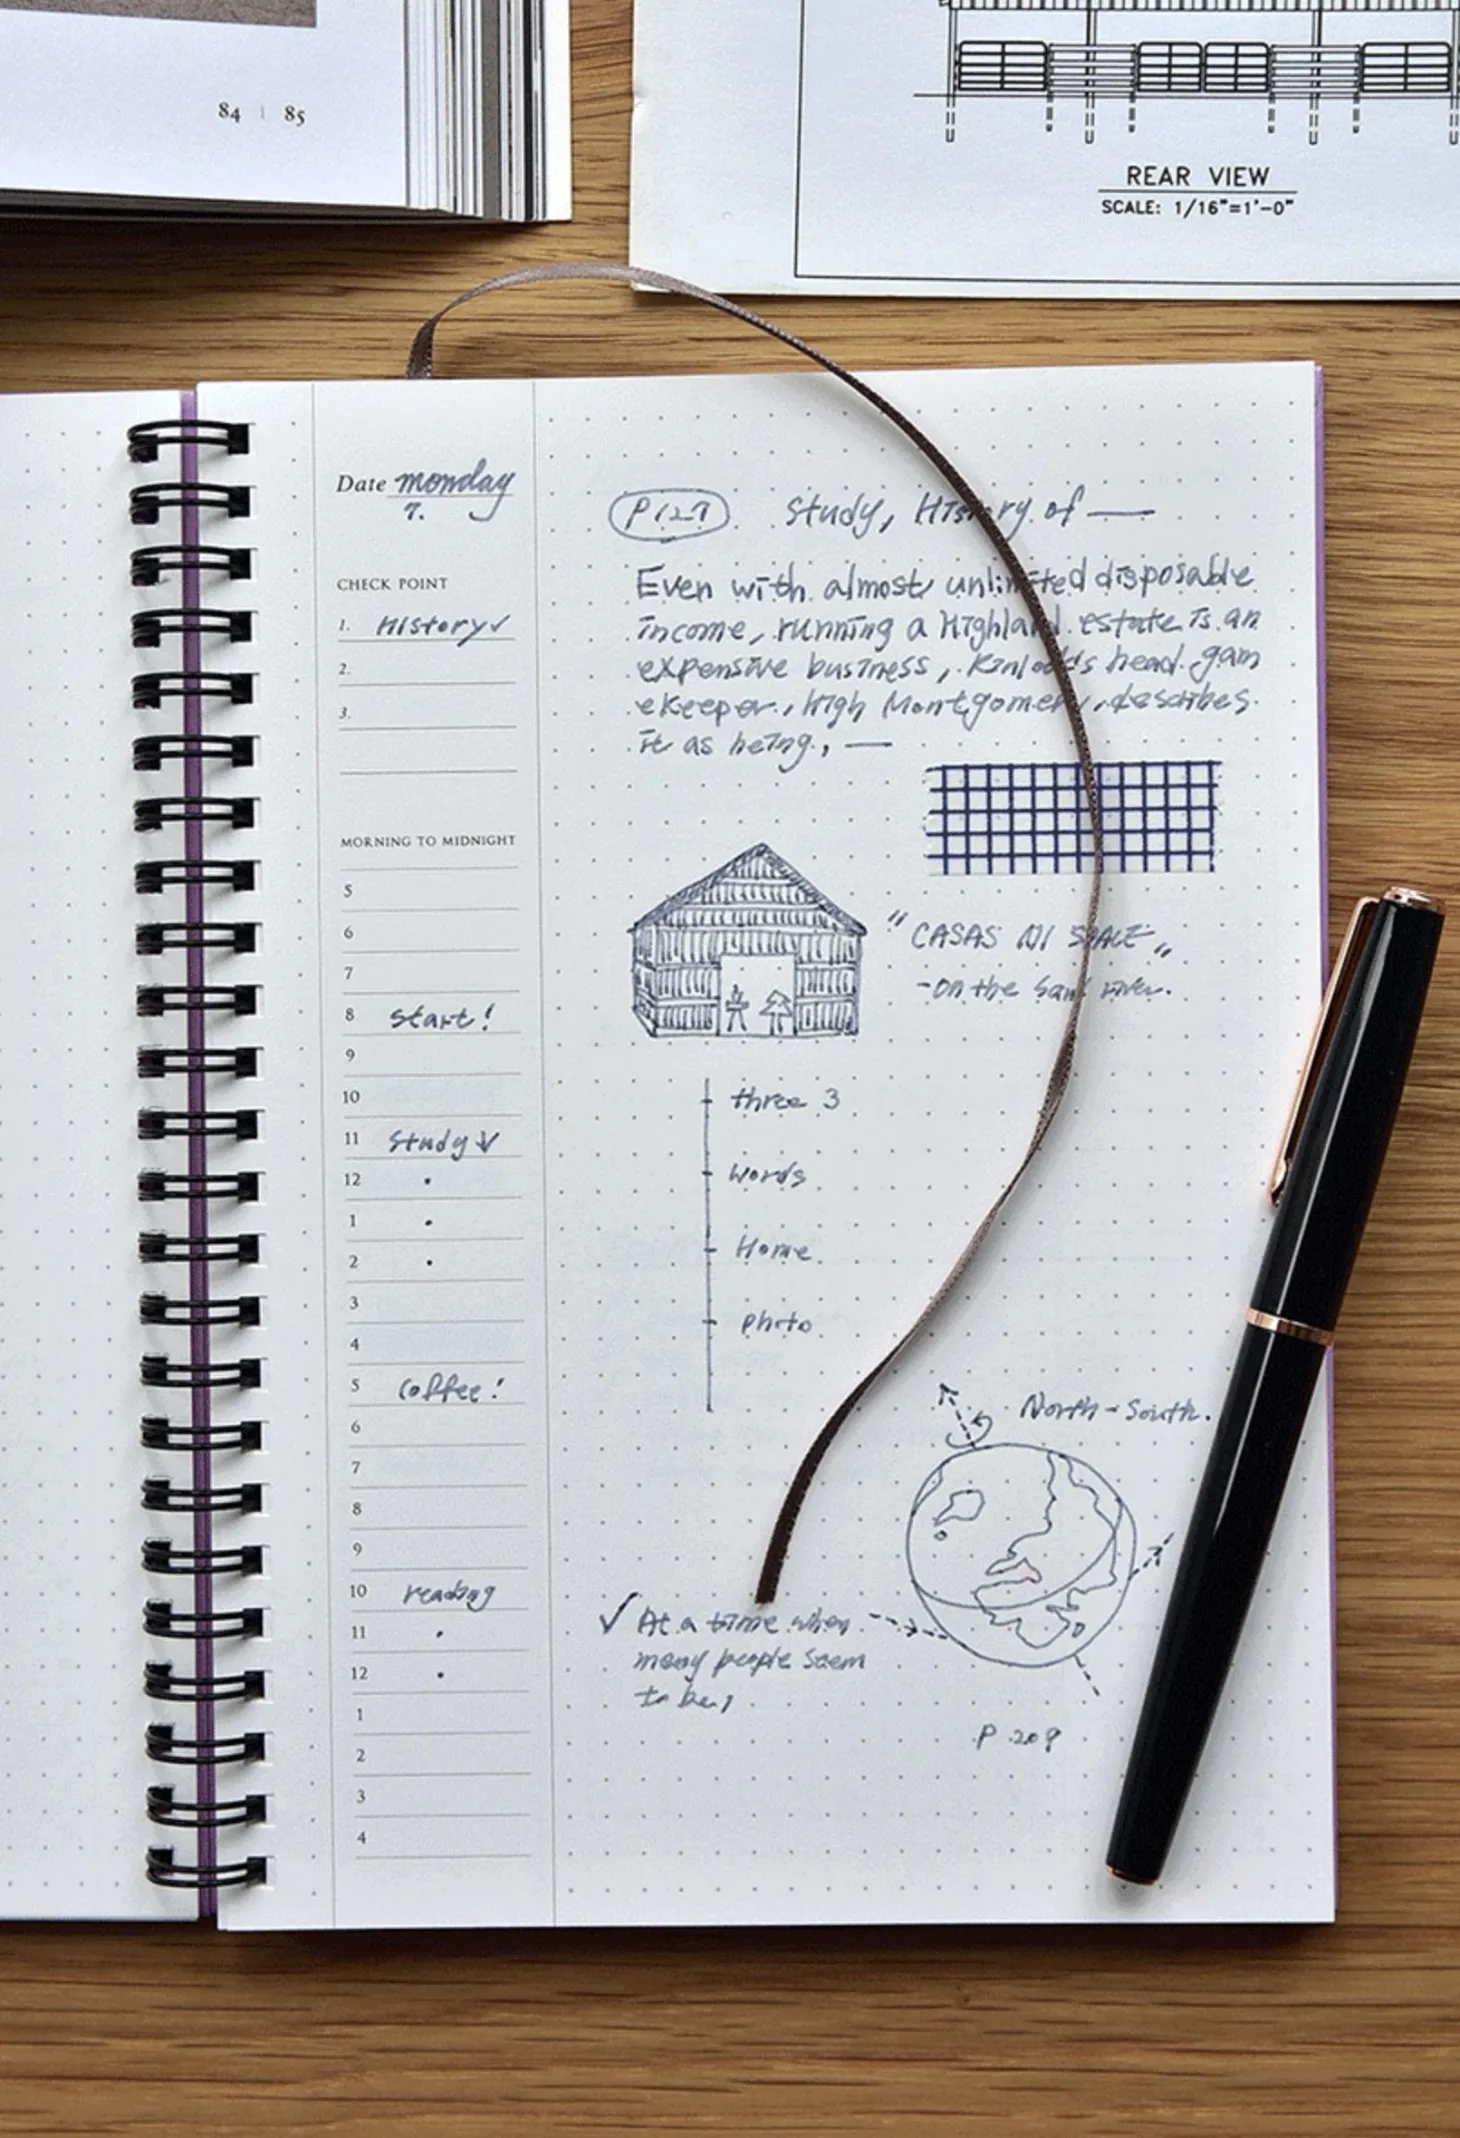 84 | 85
REAR VIEW
SCALE: 1/16"=1'-0"
Date monday
7.
CHECK POINT
1. History✓
2.
3.
MORNING TO MIDNIGHT
5
6
7
8 start!
9
10
11 Study ↓
12 •
1 •
2 •
3
4
5 coffee!
6
7
8
9
10 reading
11 •
12 •
1
2
3
4
P127 Study, History of —
Even with almost unlimited disposable
income, running a Highland estate is an
expensive business, Kinloch's head gam
ekeeper, High Montgomery, describes
it as being, —
"CASAS NI SPACE"
-on the river.
three 3
words
Home
photo
North - South.
✓ At a time when
many people seem
to be,
P 209